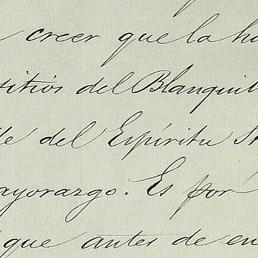 creer que la ha
sitios del Blanquil
de del Espíritu S
ayorazgo. Es por
que antes de en